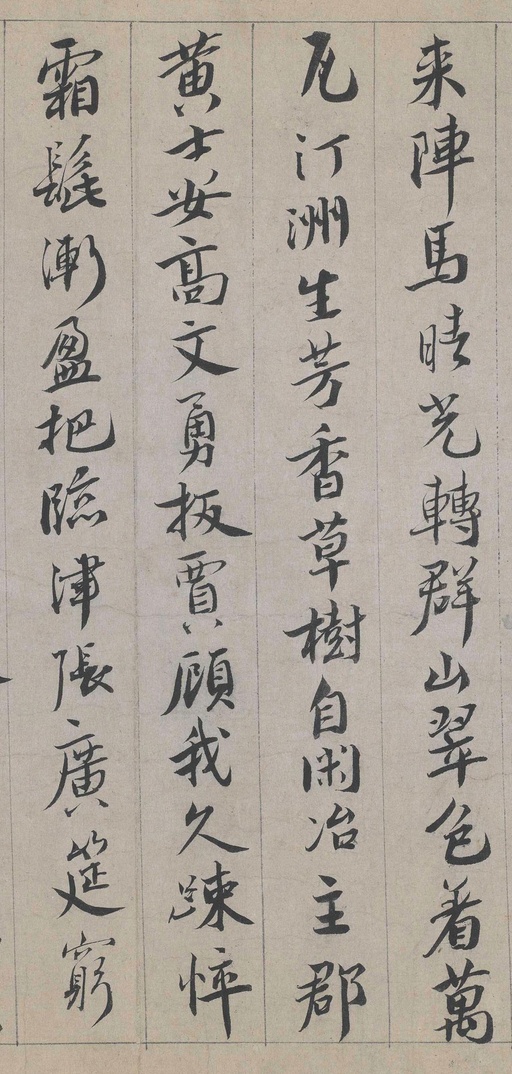 来陣馬晴光轉群山翠色著萬
瓦汀洲生芳香草樹自閑冶主郡
黄士安高文勇扳賈顧我久踈悴
霜髭漸盈把臨津張廣筵窮